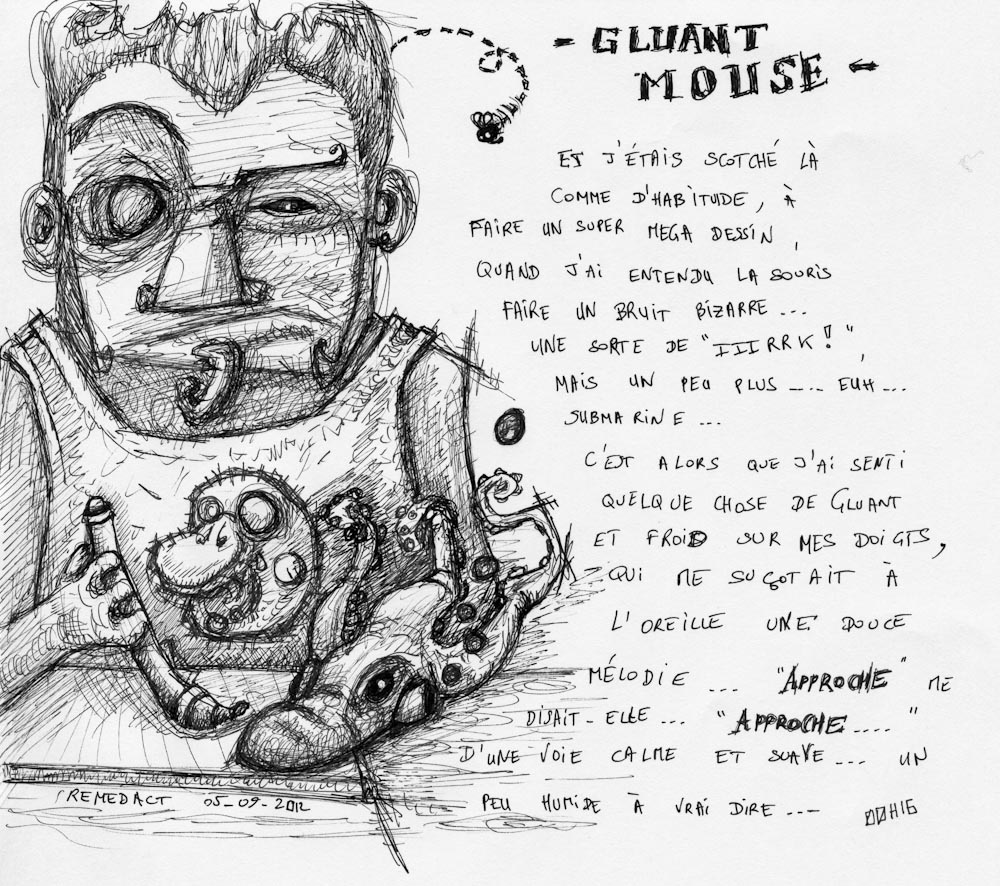 - GLUANT
MOUSE -
ET J'ÉTAIS SCOTCHÉ LÀ
COMME D'HABITUDE, À
FAIRE UN SUPER MEGA DESSIN,
QUAND J'AI ENTENDU LA SOURIS
FAIRE UN BRUIT BIZARRE...
UNE SORTE DE "IIIRRK!",
MAIS UN PEU PLUS .... EUH...
SUBMARINE ...
C'EST ALORS QUE J'AI SENTI
QUELQUE CHOSE DE GLUANT
ET FROID SUR MES DOIGTS,
QUI ME SUÇOTAIT À
L'OREILLE UNE DOUCE
MÉLODIE ... "APPROCHE" ME
DISAIT-ELLE ... "APPROCHE...."
D'UNE VOIE CALME ET SUAVE ... UN
PEU HUMIDE À VRAI DIRE ...
REMEDACT 05-09-2012